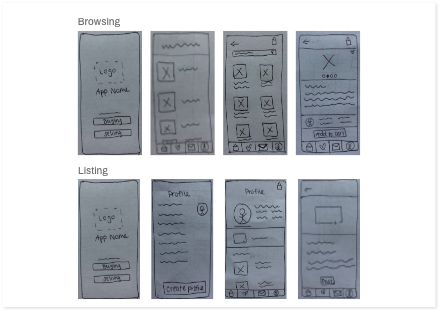 Browsing
Logo
App Name
Buying
Selling
Add to cart
Listing
Logo
App Name
Buying
Selling
Profile
Create profile
Profile
Post